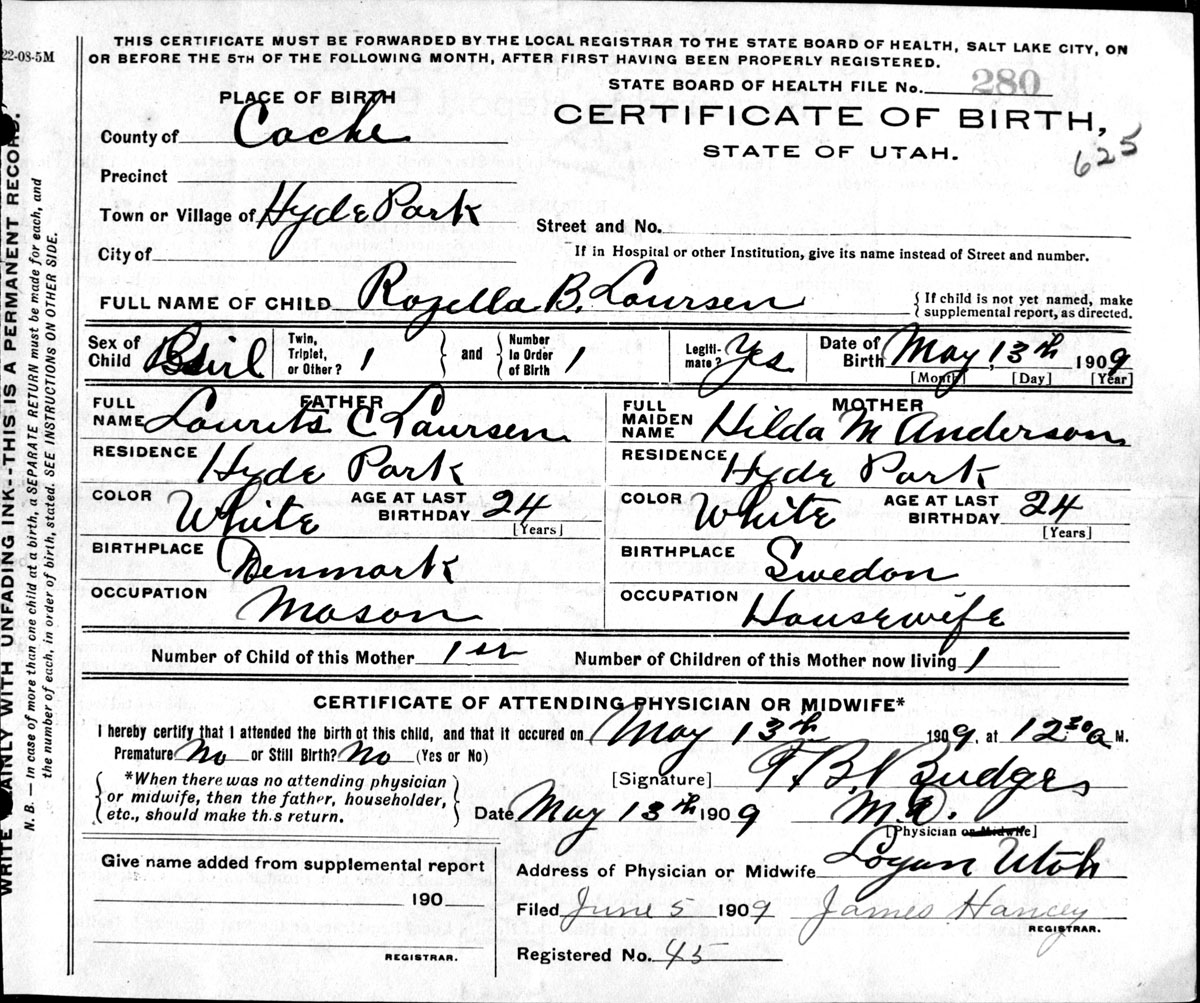 22-08-5M
THIS CERTIFICATE MUST BE FORWARDED BY THE LOCAL REGISTRAR TO THE STATE BOARD OF HEALTH, SALT LAKE CITY, ON
OR BEFORE THE 5TH OF THE FOLLOWING MONTH, AFTER FIRST HAVING BEEN PROPERLY REGISTERED.
STATE BOARD OF HEALTH FILE No. 280
PLACE OF BIRTH
CERTIFICATE OF BIRTH,
STATE OF UTAH.
625
County of Cache
Precinct
Town or Village of Hyde Park
Street and No.
City of
If in Hospital or other Institution, give its name instead of Street and number.
FULL NAME OF CHILD Rozella B. Laursen
{If child is not yet named, make
supplemental report, as directed.
Sex of Child Girl
Twin, Triplet, or Other? 1 and Number In Order of Birth 1
Legiti-mate? Yes
Date of Birth May, 13th 1909
[Month] [Day] [Year]
FATHER
FULL NAME Laurits C Laursen
RESIDENCE Hyde Park
COLOR White AGE AT LAST BIRTHDAY 24
[Years]
BIRTHPLACE Denmark
OCCUPATION Mason
MOTHER
FULL MAIDEN NAME Hilda M Anderson
RESIDENCE Hyde Park
COLOR White AGE AT LAST BIRTHDAY 24
[Years]
BIRTHPLACE Swedon
OCCUPATION Housewife
Number of Child of this Mother 1st Number of Children of this Mother now living 1
CERTIFICATE OF ATTENDING PHYSICIAN OR MIDWIFE*
I hereby certify that I attended the birth of this child, and that it occured on May 13th 1909, at 12:30 a M.
Premature No or Still Birth? No (Yes or No)
*When there was no attending physician
or midwife, then the father, householder,
etc., should make th.s return.
[Signature] T.B. Budge
Date May 13th 1909 M.D.
[Physician or Midwife]
Address of Physician or Midwife Logan Utah
Filed June 5 1909 James Hancey
REGISTRAR.
Registered No. 45
Give name added from supplemental report
190
REGISTRAR.
WRITE PLAINLY WITH UNFADING INK--THIS IS A PERMANENT RECORD.
N. B. — In case of more than one child at a birth, a SEPARATE RETURN must be made for each, and
the number of each, in order of birth, stated. SEE INSTRUCTIONS ON OTHER SIDE.